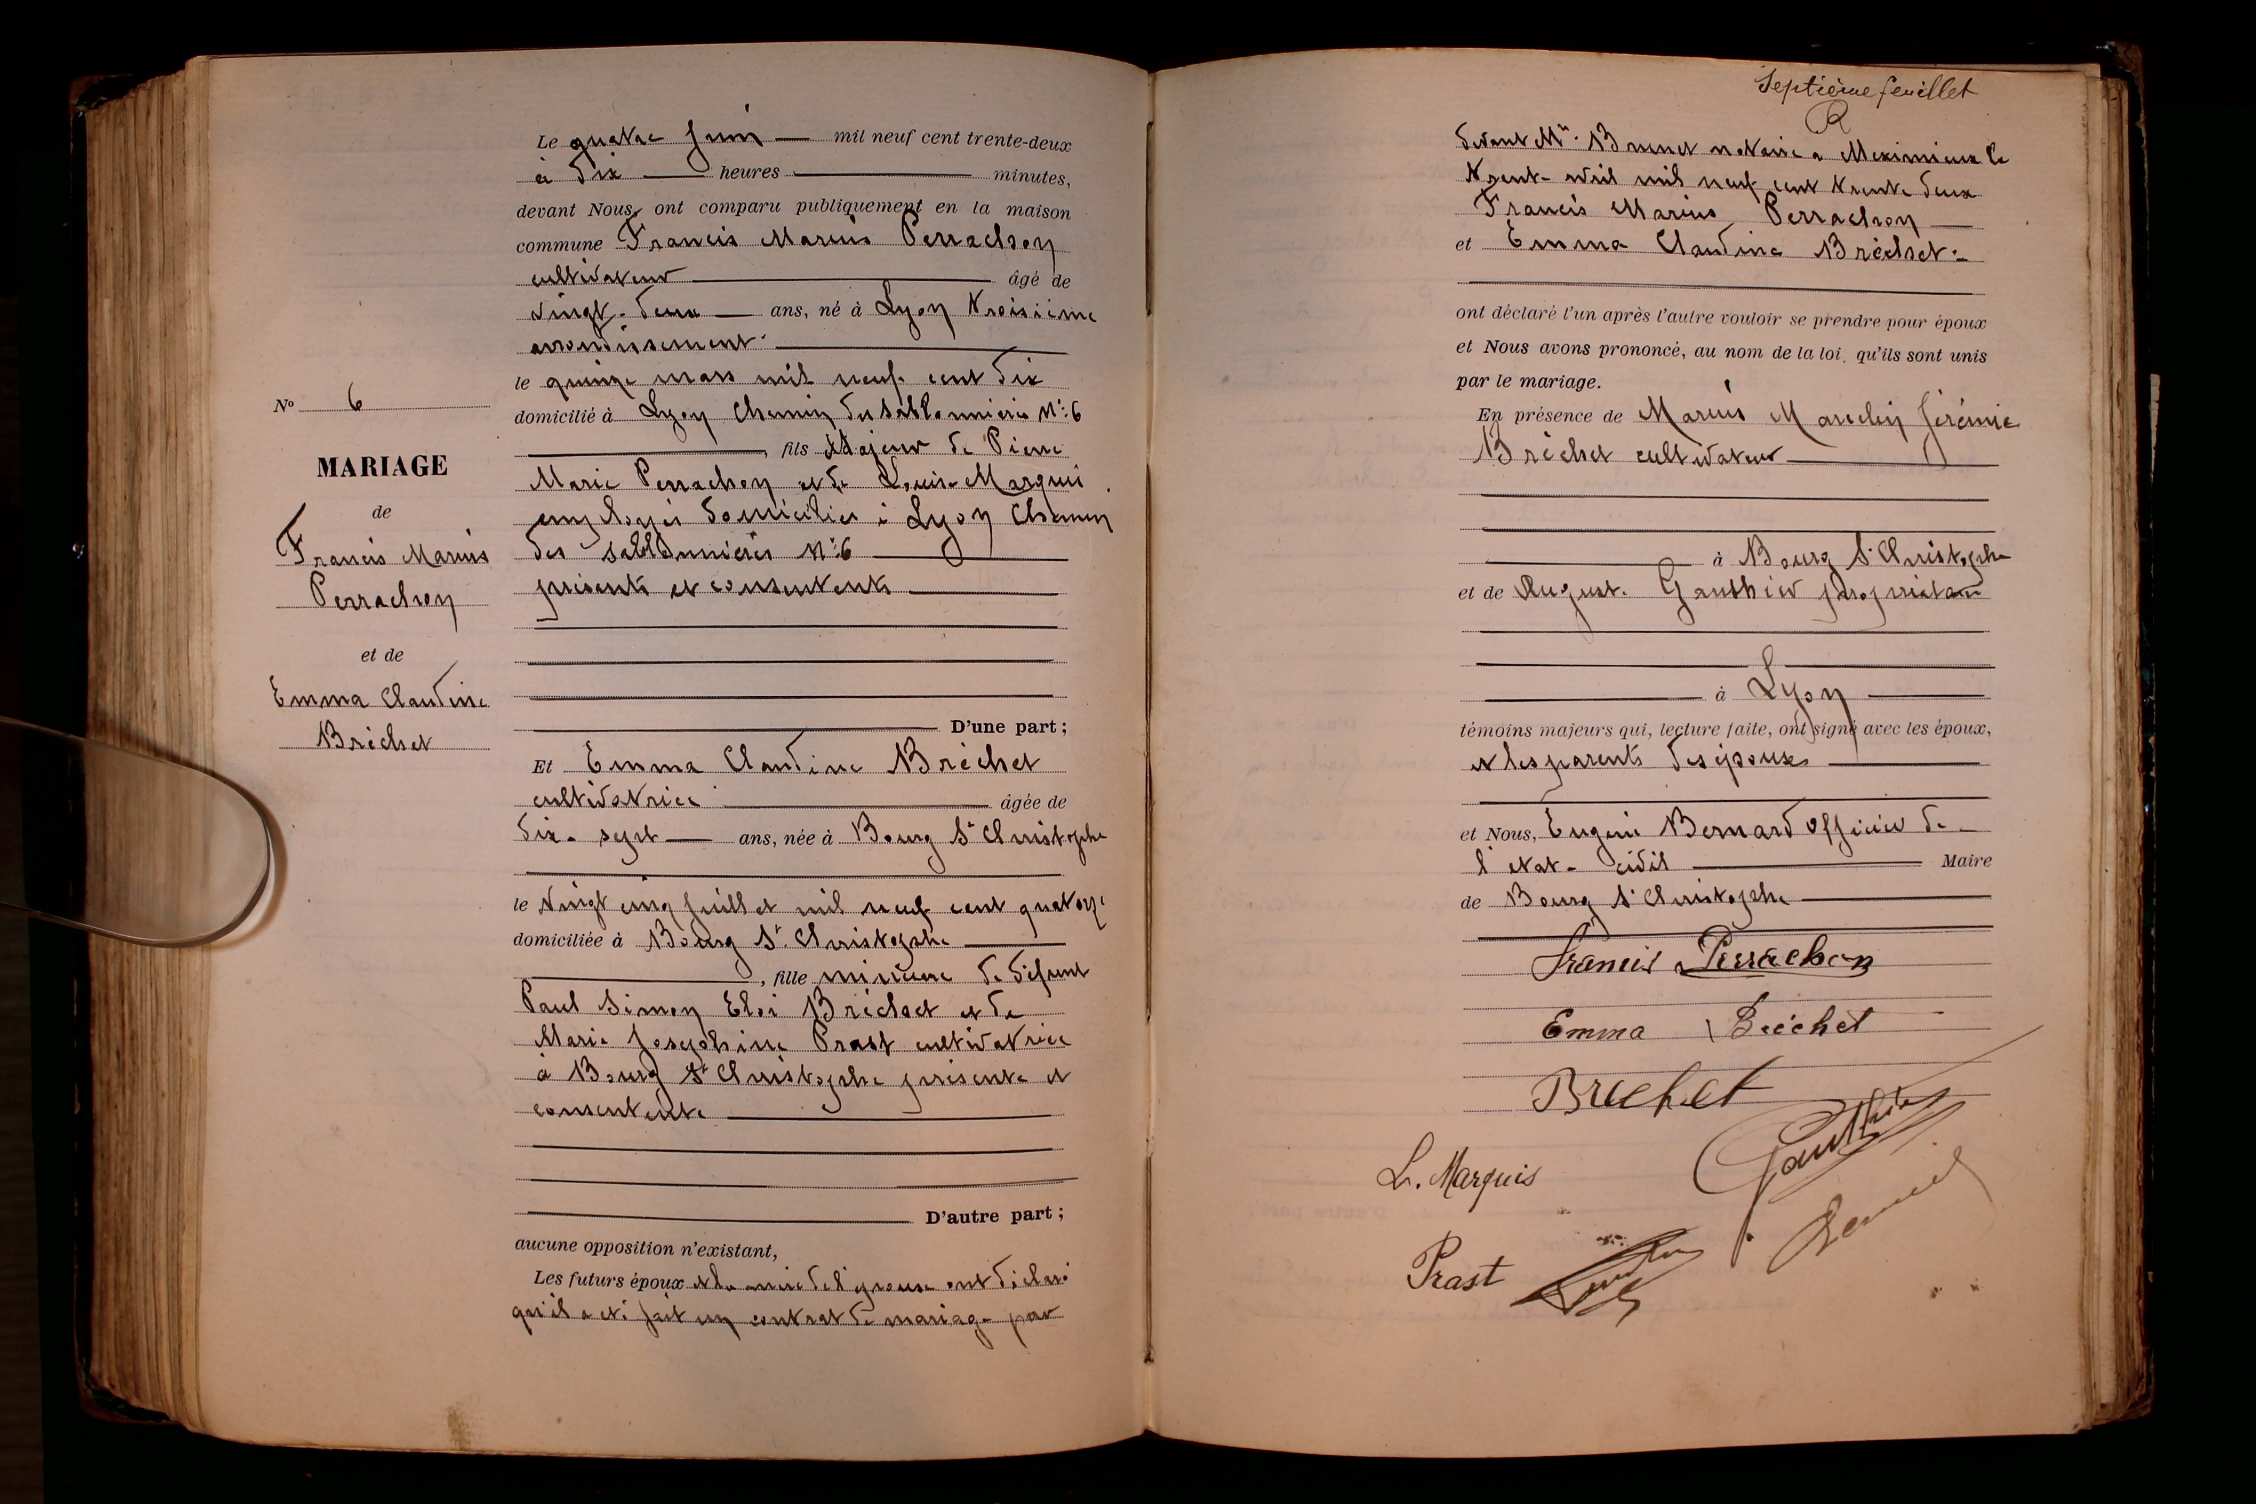 Le quatre Juin mil neuf cent trente-deux
à dix heures minutes,
devant Nous, ont comparu publiquement en la maison
commune Francis Marius Perrachon
cultivateur âgé de
vingt-deux ans, né à Lyon troisième
arrondissement
le quinze mars mil neuf cent dix
domicilié à Lyon Chemin des Sablonnières No 6
, fils Majeur de Pierre
Marie Perrachon et de Louise Marquis
employés domiciliés à Lyon Chemin
des Sablonnières No 6
présents et consentents
D'une part ;
No 6
MARIAGE
de
Francis Marius
Perrachon
et de
Emma Claudine
Bréchet
Et Emma Claudine Bréchet
cultivatrice âgée de
dix-sept ans, née à Bourg St Christophe
le vingt cinq Juillet mil neuf cent quatorze
domiciliée à Bourg St Christophe
, fille mineure de défunt
Paul Simon Eloi Bréchet et de
Marie Josephine Prast cultivatrice
à Bourg St Christophe présente et
consentente
D'autre part ;
aucune opposition n'existant,
Les futurs époux et la mère de l'épouse ont déclaré
qu'il a eté fait un contrat de mariage par
Septième feuillet
devant Me Brunet notaire a Meximieux le
trente avril mil neuf cent trente deux
Francis Marius Perrachon
et Emma Claudine Bréchet
ont déclaré l'un après l'autre vouloir se prendre pour époux
et Nous avons prononcé, au nom de la loi, qu'ils sont unis
par le mariage.
En présence de Marius Marcelin Jérémie
Bréchet cultivateur
à Bourg St Christophe
et de Auguste Gauthier propriétaire
à Lyon
témoins majeurs qui, lecture faite, ont signé avec les époux,
et les parents des époux
et Nous, Eugène Bernard officier de
l'etat-civil Maire
de Bourg St Christophe
Francis Perrachon
Emma Bréchet
Brechet
Gauthier
L. Marquis
Bernard
Prast